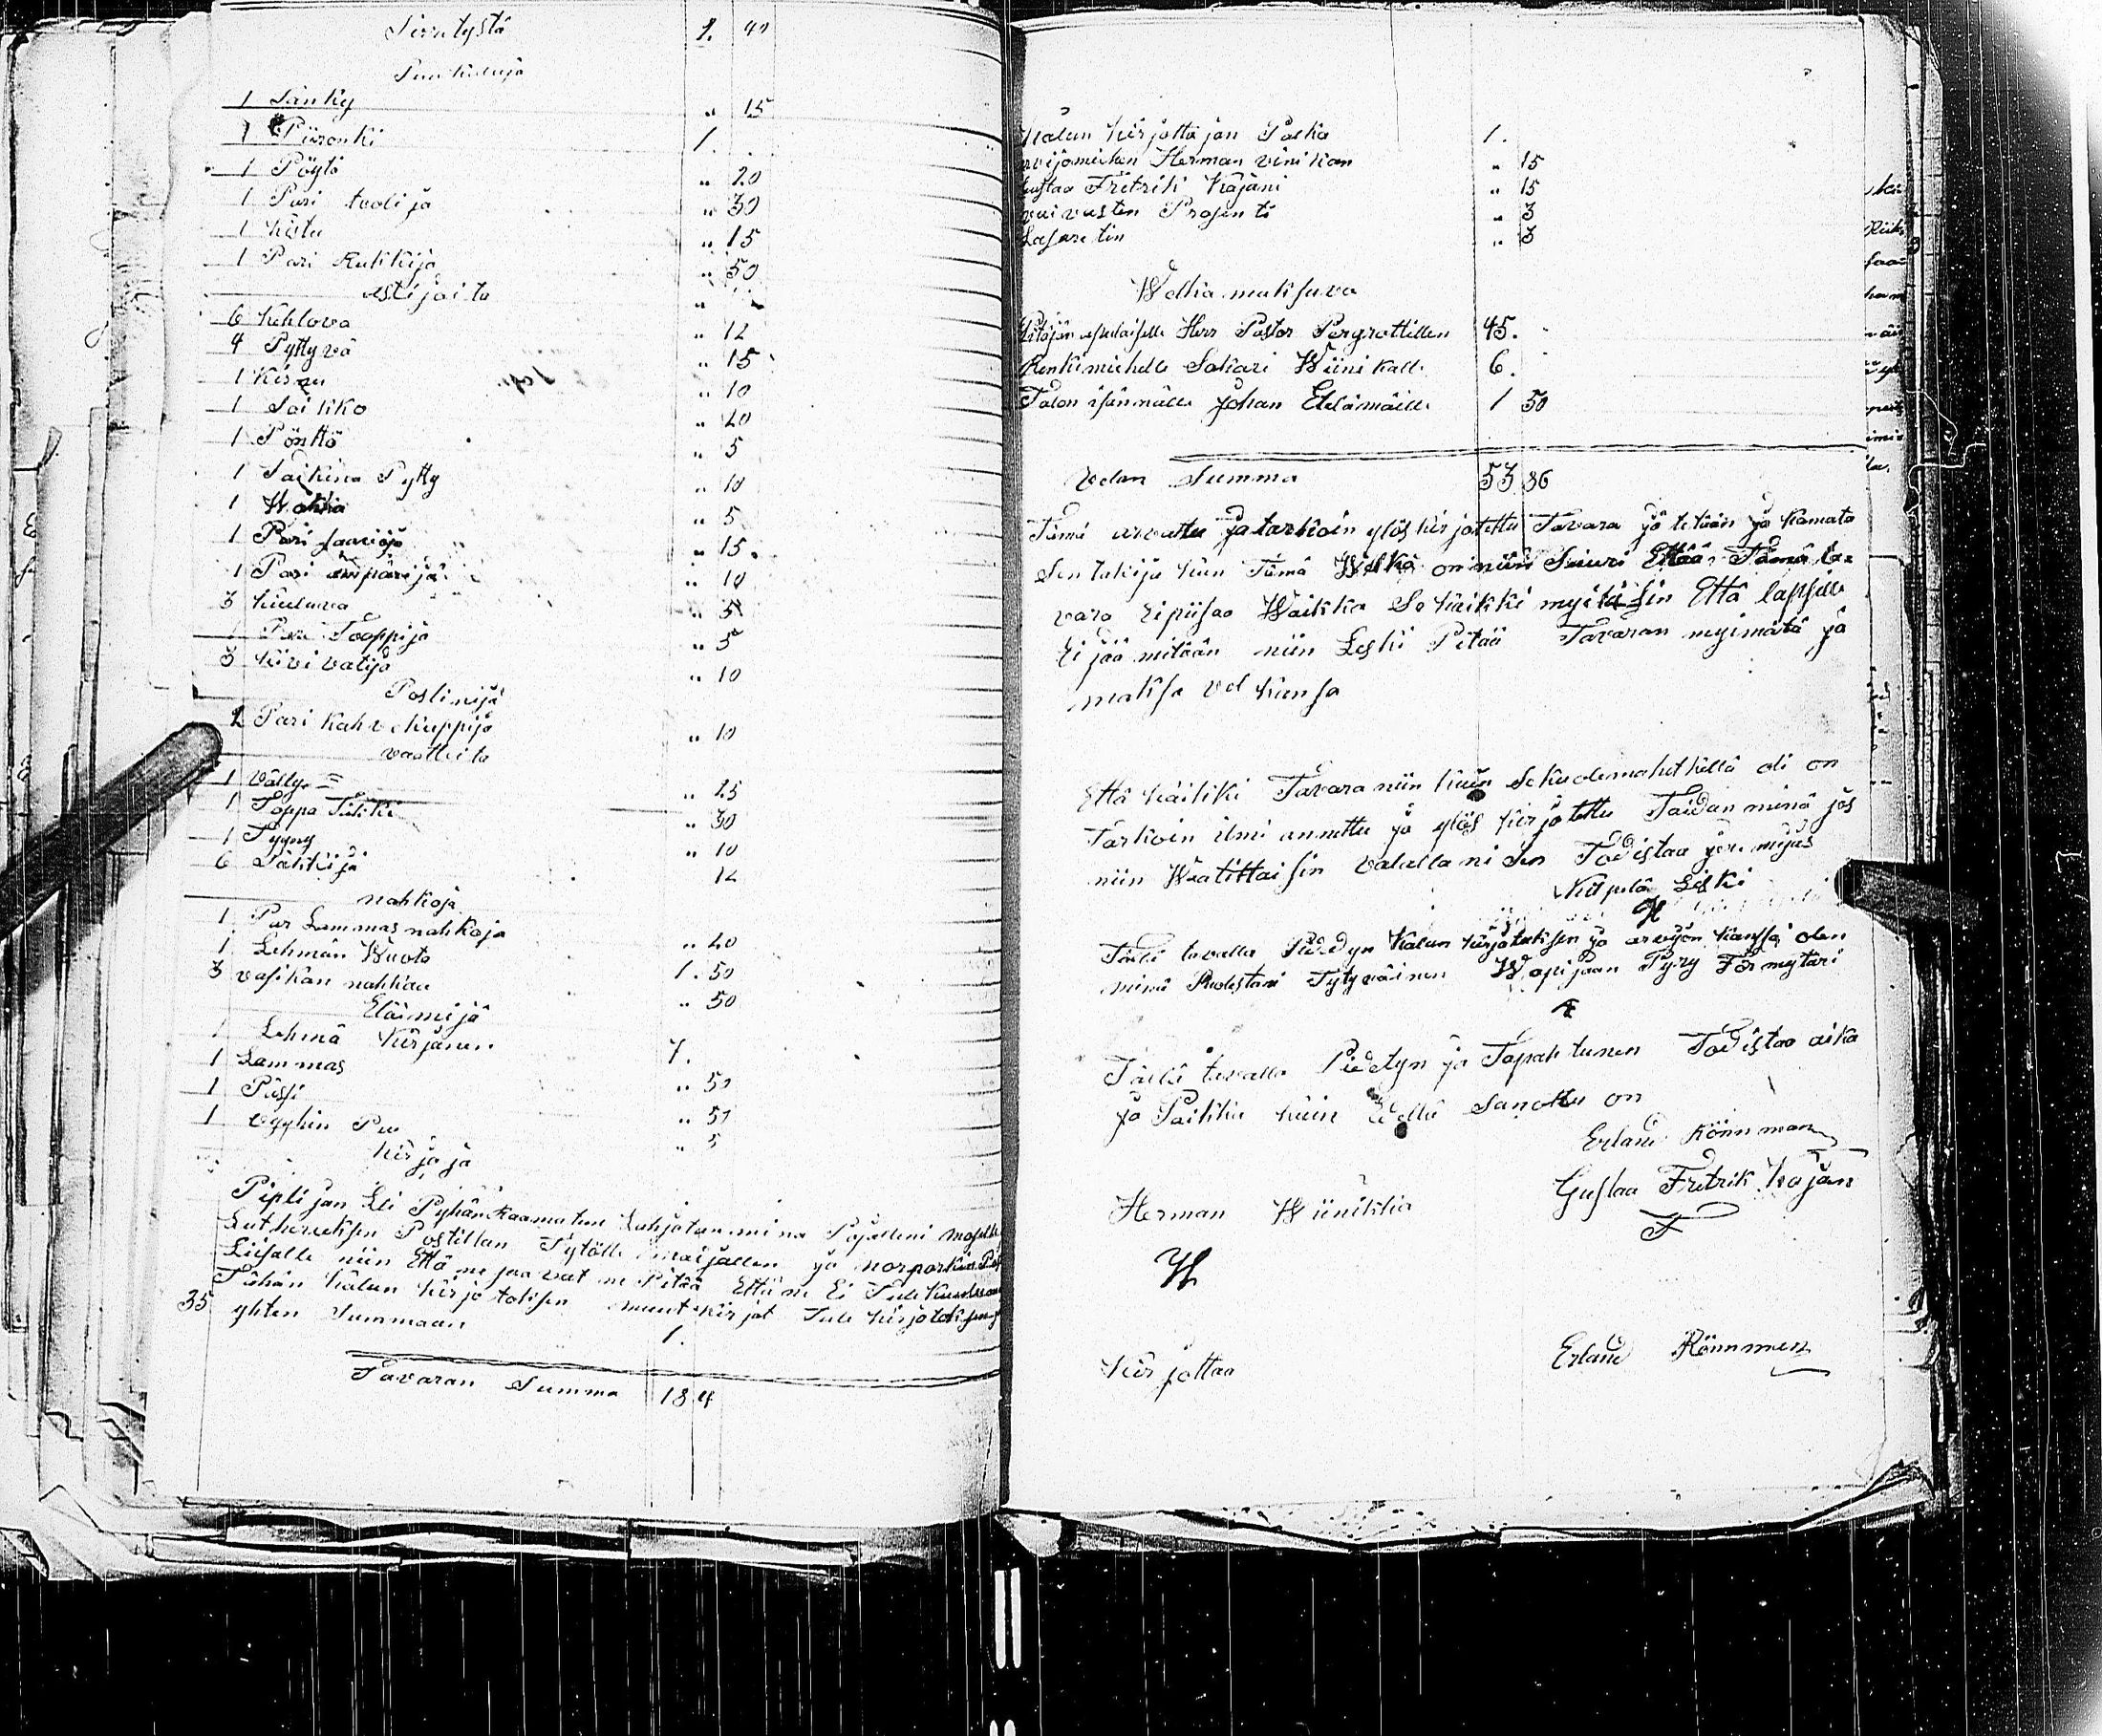 Siirutystä 1. 40
Puukaluja
1 Sänky " 15
1 Piironki 1.
1 Pöytä " 20
1 Pari toolija " 30
1 Kistu " 15
1 Pari Rukkija " 50
astijaita
6 Kehlova " 12
4 Pyttyvä " 15
1 Kirnu " 10
1 Saikko " 20
1 Pönttö " 5
1 Taikina Pytty " 10
1 Wakka " 5
1 Pari saavija " 15.
1 Pari ämpärijä " 10
3 kiuluva " 5
1 Pari Tooppija " 5
3 Kivi vatija " 10
Poslinija
2 Pari Kahvekuppijo " 10
vaatteita
1 Välly " 25
1 Toppa Täkki " 30
1 Tyyny " 10
6 Säkkijä 12
nahkoja
1 Par Lammasnahkoja " 20
1 Lehmän Wuota 1. 50
3 vasikan nahkaa " 50
Eläimijä
1 Lehmä Kirjanen 7.
1 Lammas " 50
1 Pässi " 50
1 vyyhin Puu " 5
Kirjaja
Piplijan Eli Pyhän Raamatun Lahjotan minä Pojalleni
Lutheruksen Postillan Tytölle maijallen ja norporkin
Liisalle niin Että ne jaavat ne Pitää Että ne Ei Tule
Tähän Kalun Kirjotoksen muut Kirjat Tule Kirjotoksen
35 yhten Summaan 1.
Tavaran Summa 18 4
Kalun Kirjottajan Palka 1.
Herman Vinikan " 15
Kustaa Fritrik Kajani " 15
vaivasten Prosenti " 3
Lasaretin " 3
Welka maksuva
Herr Pastor Pergrottillen 45.
Renkimiehelle Sakari Wiinikalle 6.
Talon isännälle Johan Etelämäille 1 50
velan Summa 53 86
Tämä arvattu ja tarkoin ylös kirjotettu Tavara jätetään ja Kamata
Sen takija Kun Tämä Welka on niin Suuri Että Tämä ta=
vara Eipiisaa Waikka Se Kaikki myitäisin Että lapsille
Ei jää mitään niin Leski Pitää Tavaran myimätä ja
maksa vel Kansa
Että Kaikki Tavara niin Kuin Se Kuolemahetkellä oli on
Tarkoin ilmi annettu ja ylös Kirjotettu Taidan minä jos
niin Waatittaisin valallani Sen Todistaa
Leski
Tällä tavalla Pidetyn Kalun Kirjotuksen ja arvijon Kanssa olen
minä Tytyväinen
Tällä tavalla Pidetyn ja Tapahtunen Todistaa aika
ja Paikka Kuin Edellä Sanottu on
Erland Rönnman
Herman Wiinikka Gustaa Fretrik Kajan
Kirjottaa Erland Rönnman